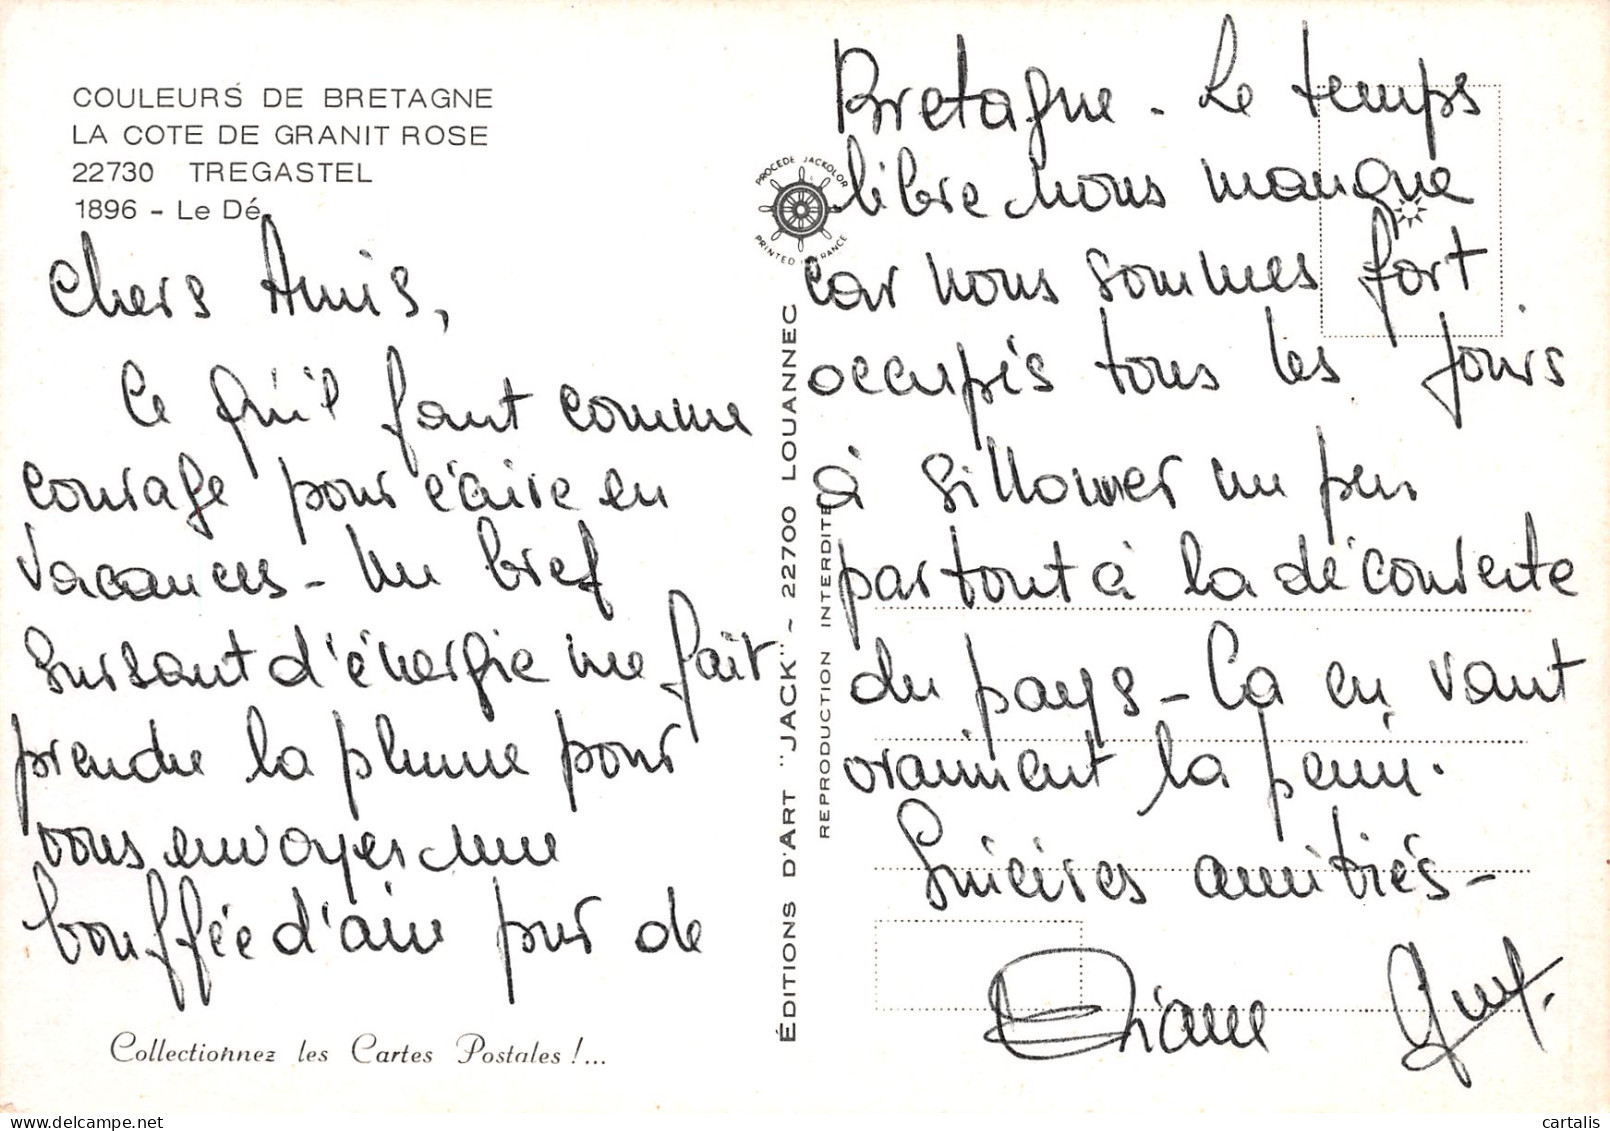 COULEURS DE BRETAGNE
LA COTE DE GRANIT ROSE
22730 TREGASTEL
1896 - Le Dé
Chers Amis,
Ce qu'il faut comme
courage pour écrire en
vacances - Un bref
sursaut d'énergie me fait
prendre la plume pour
vous envoyer une
bouffée d'air pur de
Collectionnez les Cartes Postales !...
PROCEDE JACKOLOR
PRINTED IN FRANCE
ÉDITIONS D'ART "JACK" - 22700 LOUANNEC
REPRODUCTION INTERDITE
Bretagne - Le temps
libre nous manque
car nous sommes fort
occupés tous les jours
à sillonner un peu
partout à la découverte
du pays - Ça en vaut
vraiment la peine.
Sincères amitiés -
Diane
cartalis